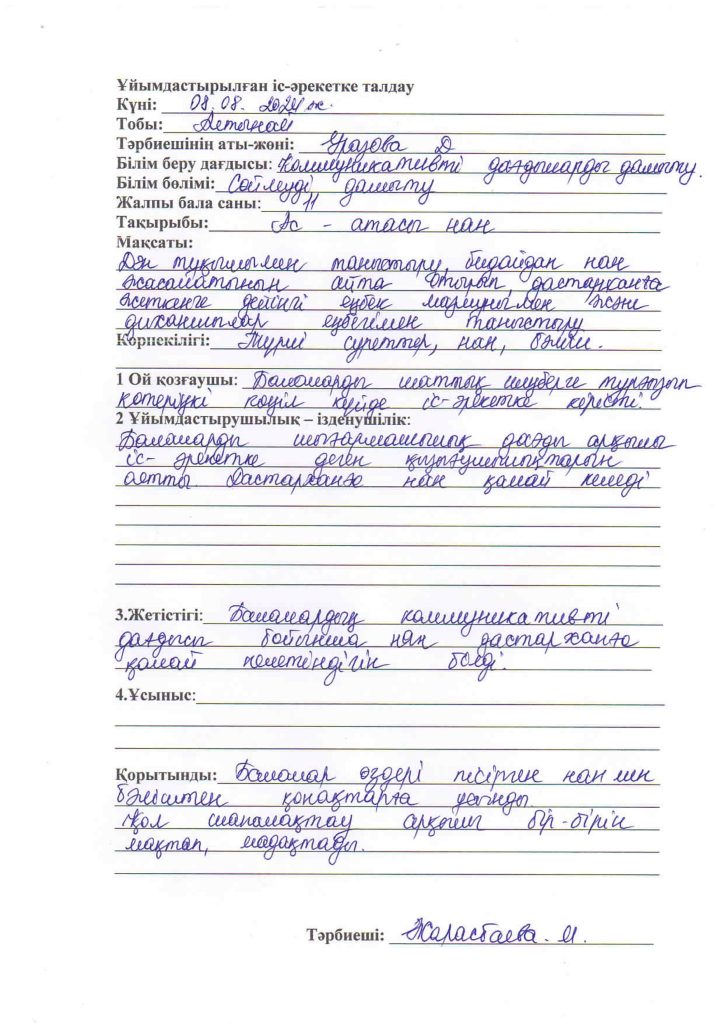 Ұйымдастырылған іс-әрекетке талдау
Күні: 08.08. 2024ж.
Тобы: Алтынай
Тәрбиешінің аты-жөні: Уразова Д
Білім беру дағдысы: Коммуникативті дағдыларды дамыту.
Білім бөлімі: Сөйлеуді дамыту
Жалпы бала саны: 11
Тақырыбы: Ас - атасы нан
Мақсаты:
Дән тұқымымен таныстыру, бидайдан нан
жасалатынын айта отырып, дастарханға
жеткенге дейінгі еңбек мазмұнымен және
диханшылар еңбегімен таныстыру
Көрнекілігі: Түрлі суреттер, нан, бәліш.
1 Ой қозғаушы: Балаларды шаттық шеңберге тұрғызып
көтеріңкі көңіл күйде іс-әрекетке кірісті.
2 Ұйымдастырушылық – ізденушілік:
Балаларды шығармашылық дағды арқылы
іс-әрекетке деген қызығушылықтарын
аятты. Дастарханға нан қалай келеді
3.Жетістігі: Балалардың коммуникативті
дағдысы бойынша нан дастарханға
қалай келетіндігін білді.
4.Ұсыныс:
Қорытынды: Балалар өздері пісірген нан мен
бәлішпен қонақтарға
Қол шапалақтау арқылы бір-бірін
мақтап, мадақтады.
Тәрбиеші: Жарасбаева. И.